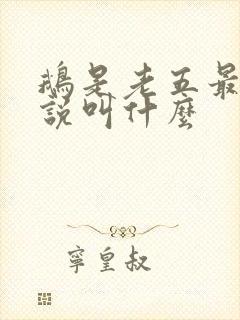 鵝是老五最
說叫什麼
寧皇叔